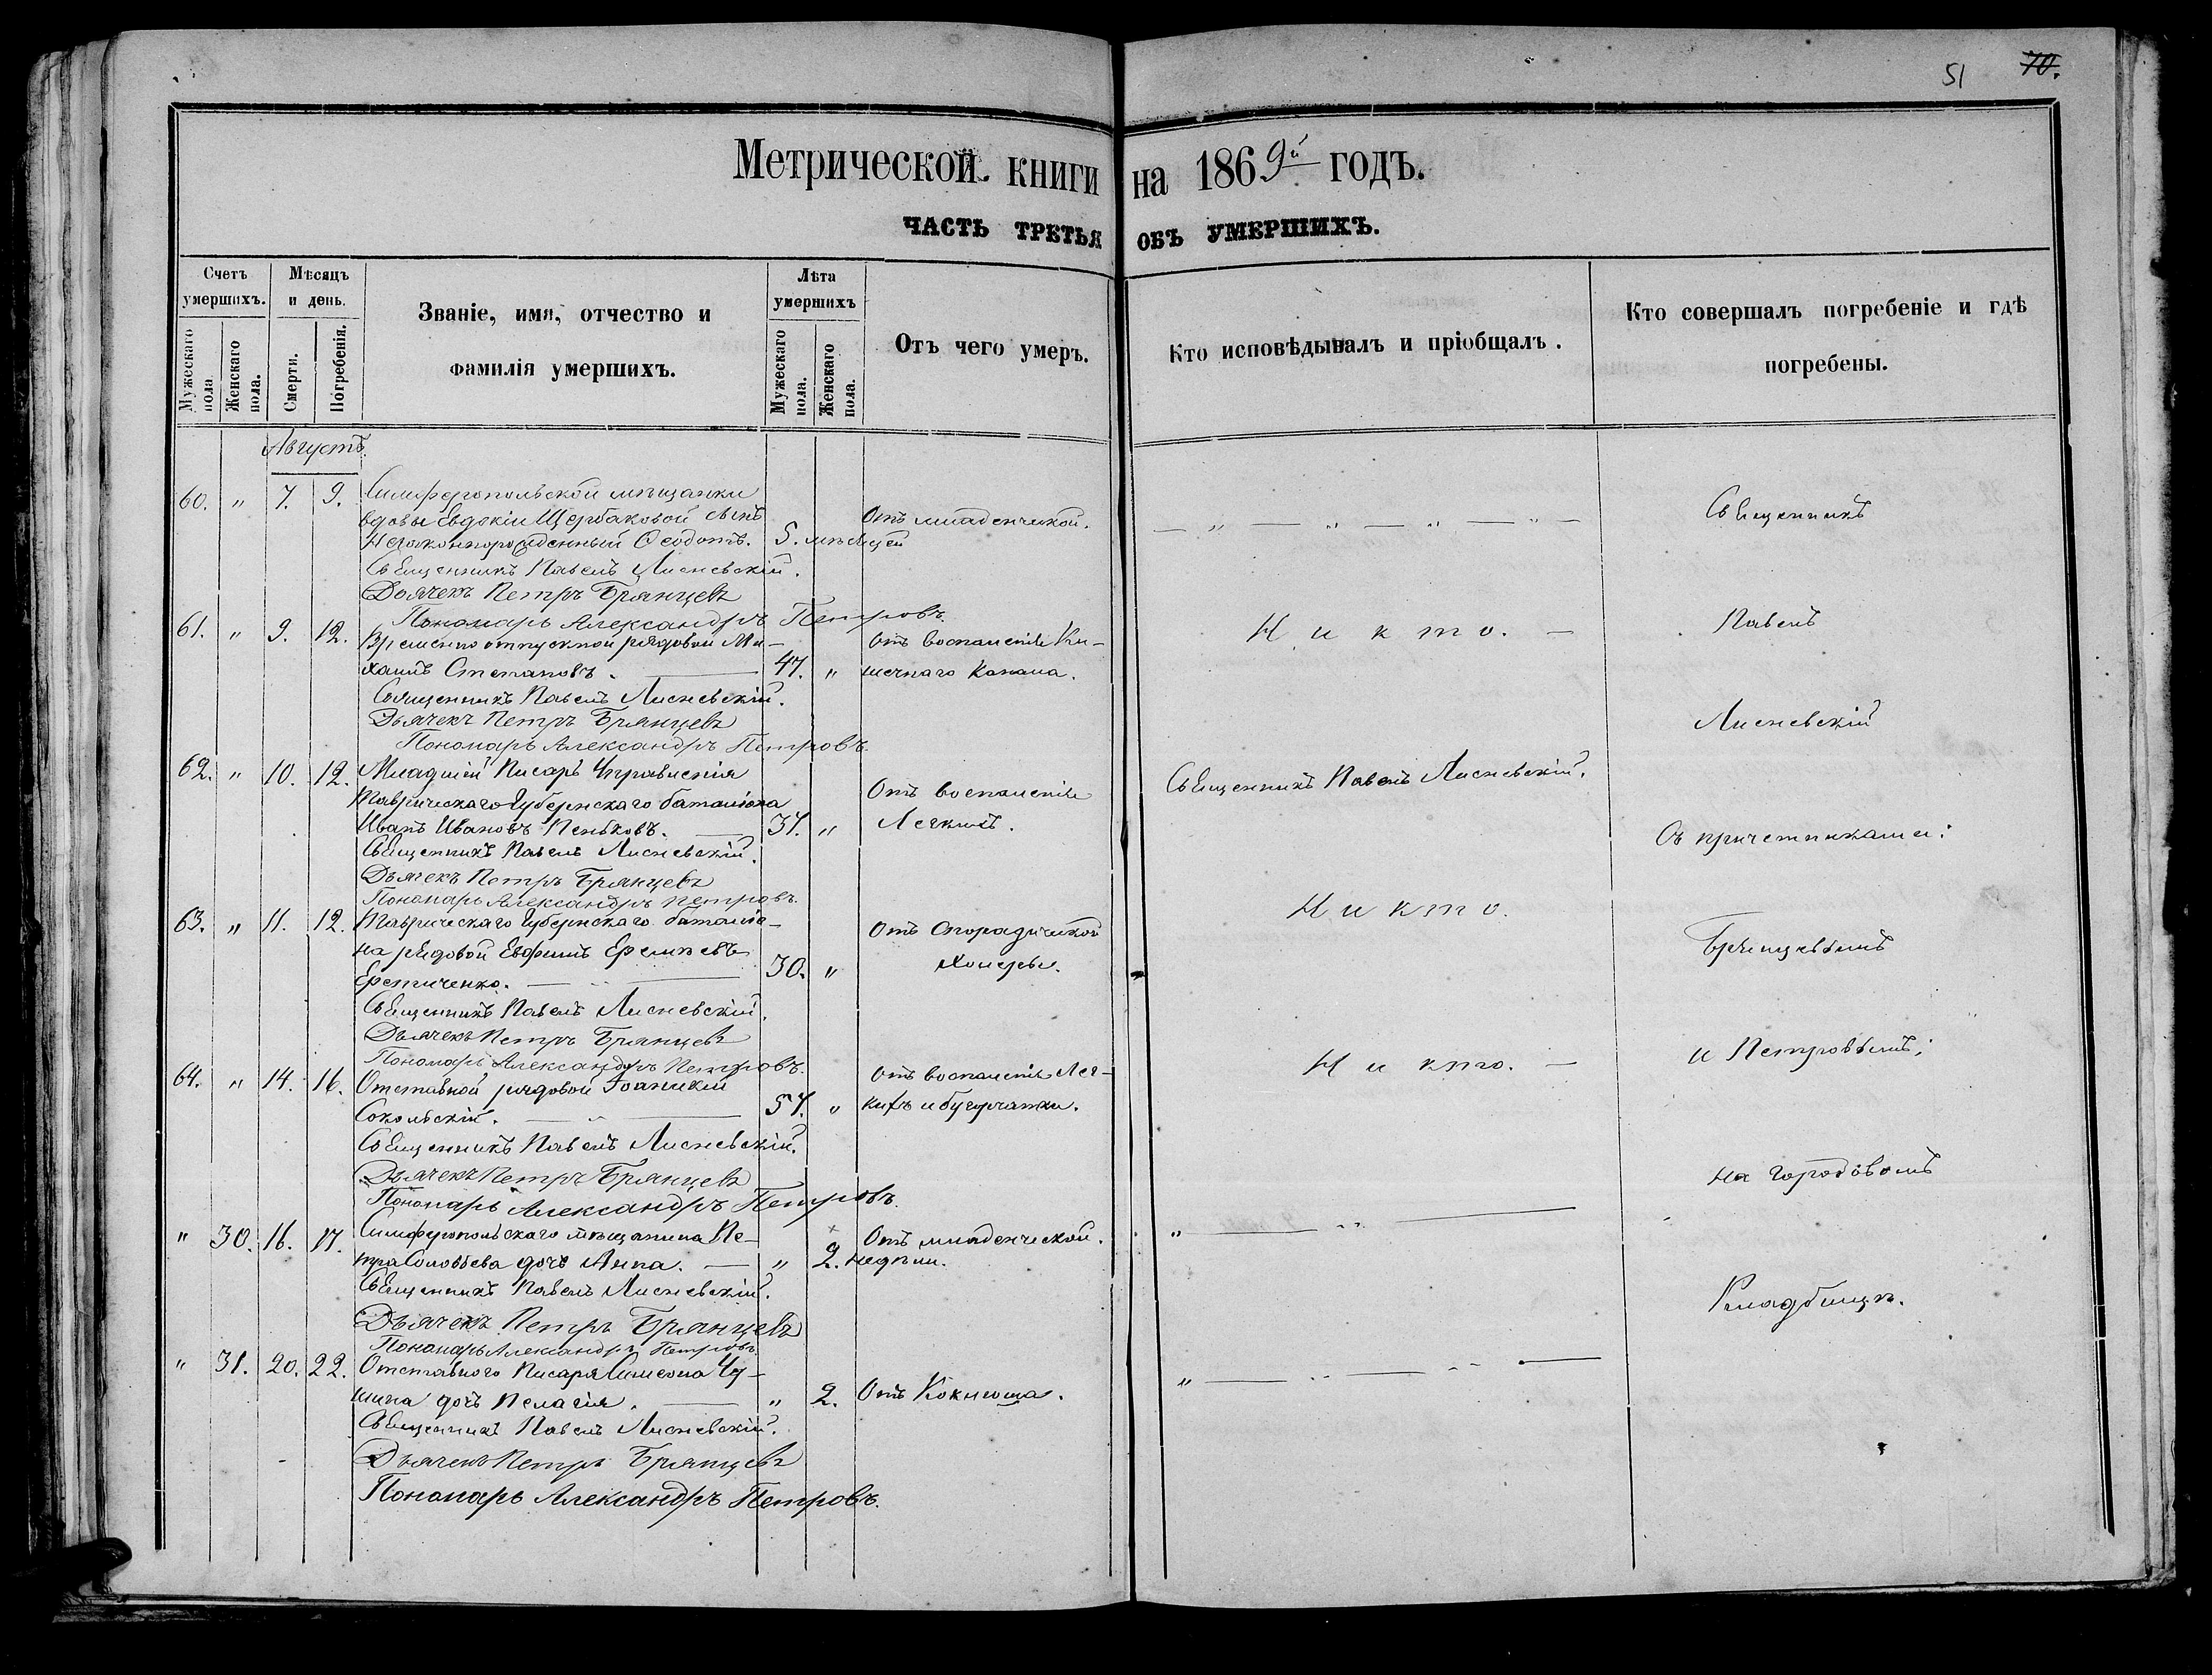 51 70.
Метрической книги на 1869й годъ.
ЧАСТЬ ТРЕТЬЯ ОБЪ УМЕРШИХЪ.
Счетъ умершихъ.
Мужескаго пола.
Женскаго пола.
Мѣсяцъ и день.
Смерти.
Погребенія.
Званіе, имя, отчество и
фамилія умершихъ.
Лѣта умершихъ
Мужескаго пола.
Женскаго пола.
Отъ чего умеръ.
Кто исповѣдывалъ и пріобщалъ.
Кто совершалъ погребеніе и гдѣ
погребены.
Августъ.
60. " 7. 9. Симферопольской мѣщанки
вдовы Евдокіи Щербаковой сынъ Отъ младенческой. — " — " — " — " —
незаконнорожденный Ѳеодотъ. 5. мѣсяцей
Священникъ Павелъ Лисневскій.
Дьячекъ Петръ Брянцевъ
Пономарь Александръ Петровъ.
61. " 9. 12. Временно отпускной рядовой Ми- Отъ воспаленія Ки- Никто. —
хаилъ Степановъ. — 47. " шечнаго Канала.
Священникъ Павелъ Лисневскій.
Дьячекъ Петръ Брянцевъ
Пономарь Александръ Петровъ.
62. " 10. 12. Младшій Писарь Управленія
Таврическаго Губернскаго баталіона Отъ воспаленія Священникъ Павелъ Лисневскій.
Иванъ Ивановъ Пеньковъ. — 37. " Легкихъ.
Священникъ Павелъ Лисневскій.
Дьячекъ Петръ Брянцевъ
Пономарь Александръ Петровъ.
63. " 11. 12. Таврическаго Губернскаго баталіо- Отъ спорадической Никто.
на рядовой Евфимъ Еремѣевъ 30. " Холеры.
Еретиченко. —
Священникъ Павелъ Лисневскій.
Дьячекъ Петръ Брянцевъ
Пономарь Александръ Петровъ.
64. " 14. 16. Отставной рядовой Іоаникій Отъ воспаленія Лег- Никто. —
Сокольскій. — 57. " кихъ и бугорчатки.
Священникъ Павелъ Лисневскій.
Дьячекъ Петръ Брянцевъ
Пономарь Александръ Петровъ.
" 30. 16. 17. Симферопольскаго мѣщанина Пе- Отъ младенческой. " —
тра Соловьева дочь Анна. — " 2. недѣли.
Священникъ Павелъ Лисневскій.
Дьячекъ Петръ Брянцевъ
Пономарь Александръ Петровъ.
" 31. 20. 22. Отставного Писаря Симеона
дочь Пелагія. — " 2. Отъ Коклюша. " —
Священникъ Павелъ Лисневскій.
Дьячекъ Петръ Брянцевъ
Пономарь Александръ Петровъ.
Священникъ
Павелъ
Лисневскій
Съ причетниками:
Брянцевымъ
и Петровымъ;
на городовомъ
Кладбищѣ.